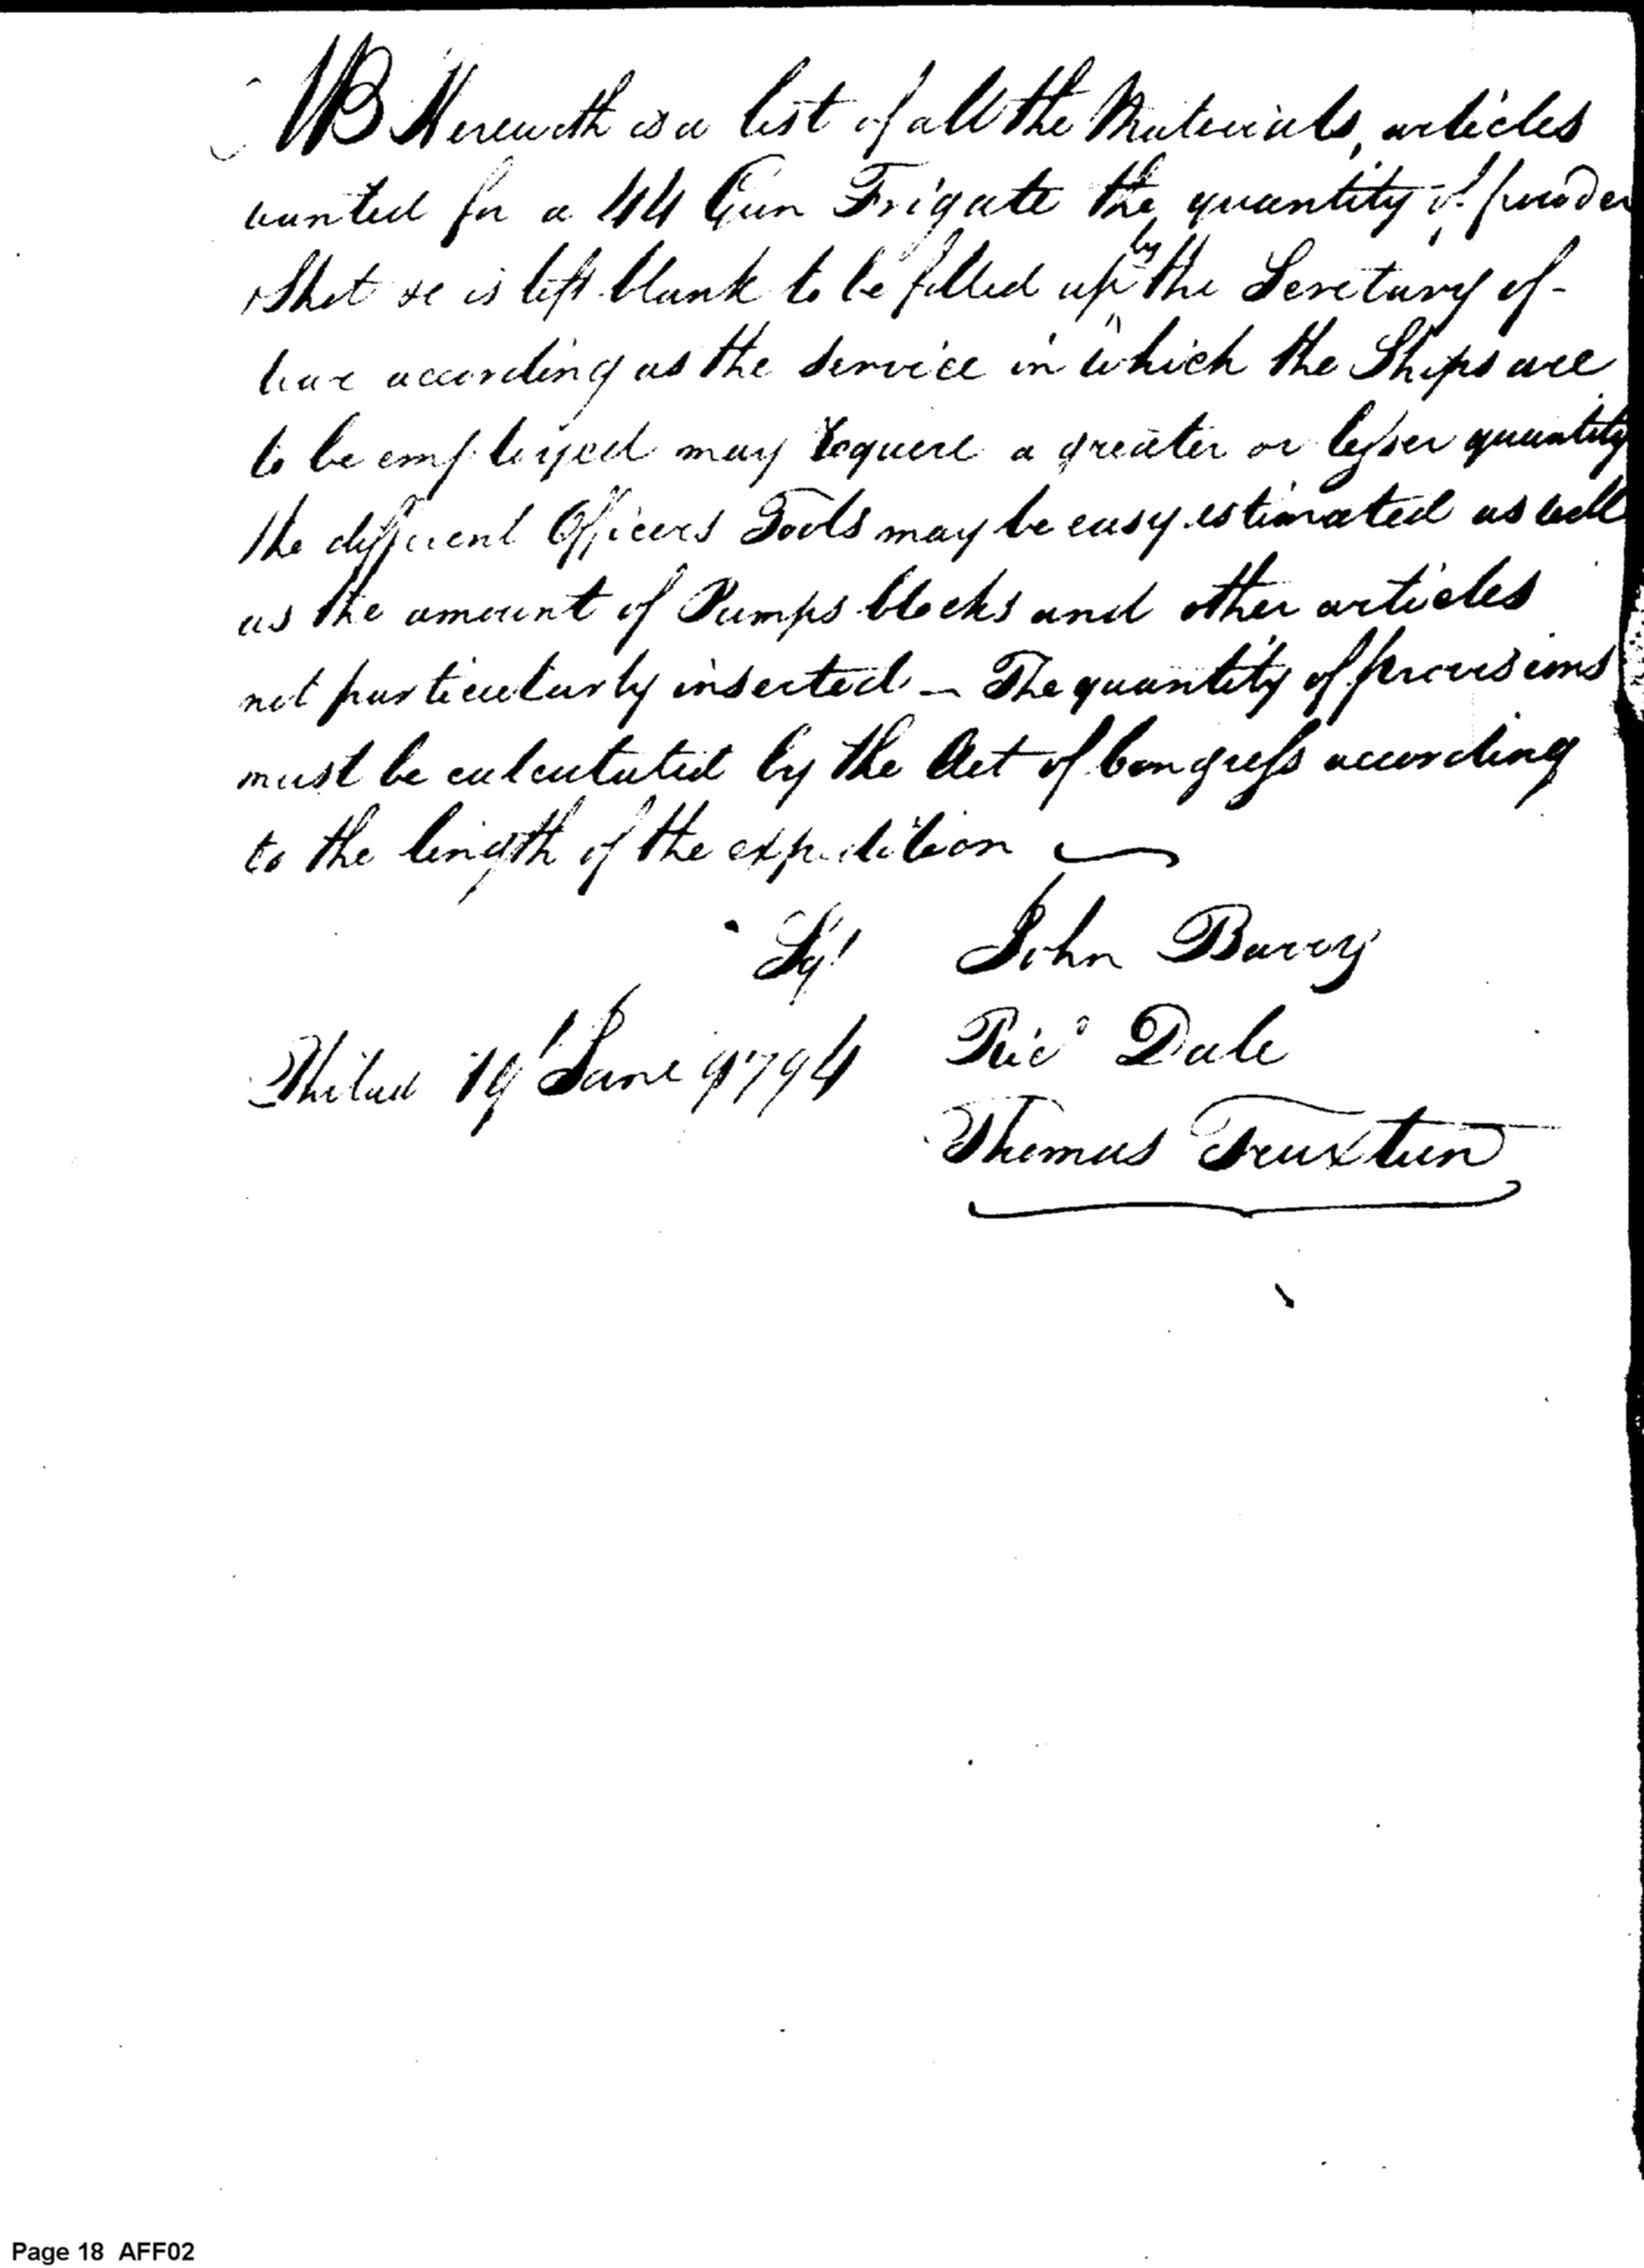 NB Herewith is a list of all the Materials, articles
wanted for a 44 Gun Frigate the quantity of powder
Shot &c is left blank to be filled up by the Secretary of -
war according as the service in which the Ships are
to be employed may require a greater or lesser quantity
the different Officers Tools may be easy estimated as well
as the amount of Pumps blocks and other articles
not particularly inserted - The quantity of provisions
must be calculated by the Act of Congress according
to the length of the expedition
Sg^d John Barry
Ric^d Dale
Philad 19 June 1794
Thomas Truxtun
Page 18 AFF02